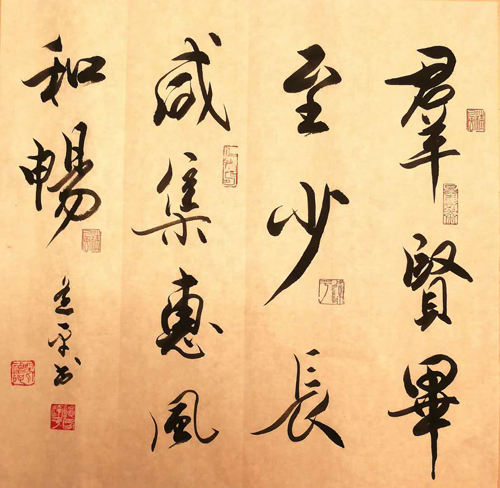 羣賢畢
至少長
咸集惠風
和暢